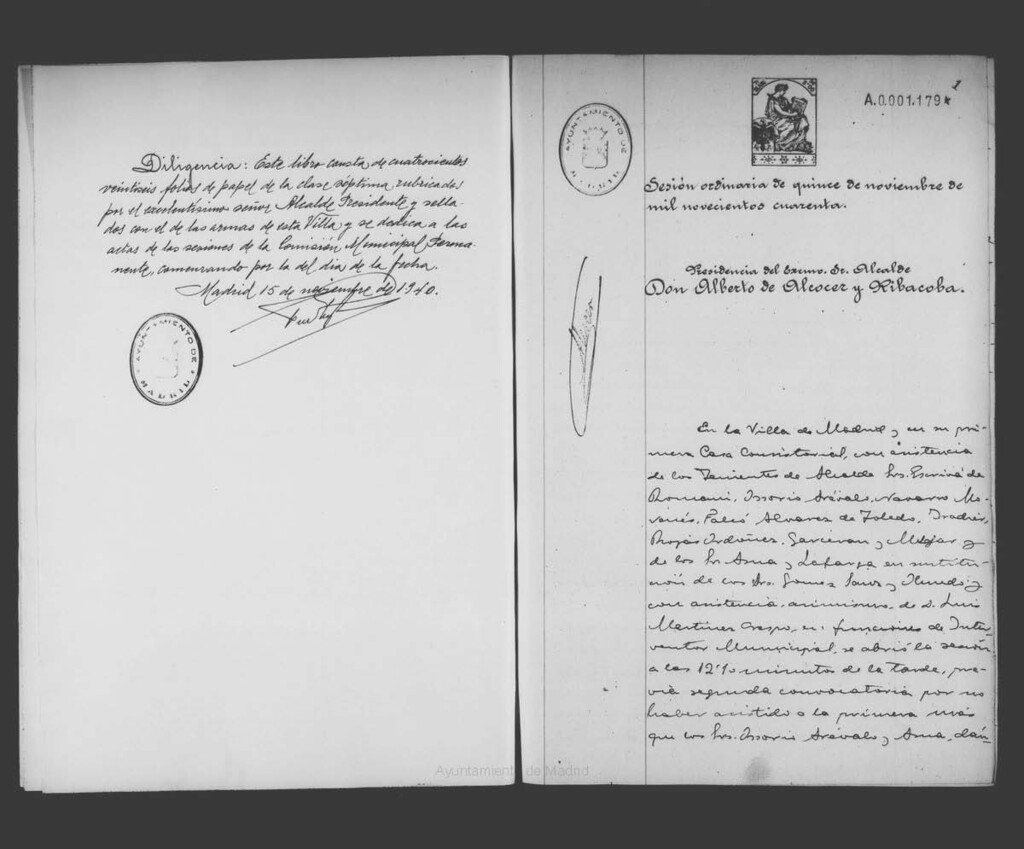 Diligencia: Este libro consta de cuatrocientos
veintiseis folios de papel de la clase séptima, rubricados
por el excelentísimo señor Alcalde Presidente y sella-
dos con el de las armas de esta Villa y se dedica a las
actas de las sesiones de la Comisión Municipal Perma-
nente, comenzando por la del dia de la fecha.
Madrid 15 de noviembre de 1940.
AYUNTAMIENTO DE
MADRID
AYUNTAMIENTO DE
MADRID
1
A.0.001.179*
Sesión ordinaria de quince de noviembre de
mil novecientos cuarenta.
Presidencia del Excmo. Sr. Alcalde
Don Alberto de Alcocer y Ribacoba.
En la Villa de Madrid y en su pri-
mera Casa Consistorial, con asistencia
de los Tenientes de Alcalde Srs. Escrivá de
Romaní, Ossorio Arévalo, Navarro Mo-
renés, Falcó Alvarez de Toledo, Iradier,
Rojas Ordóñez, Garcerán y Melgar y
de los Sr. Asua y Lafarga en sustitu-
ción de los Srs. Gomez Sanz y Olmedo y
con asistencia asimismo de D. Luis
Martinez Crespo, en funciones de Inter-
ventor Municipal, se abrió la sesión
a las 12'10 minutos de la tarde, pre-
via segunda convocatoria por no
haber asistido a la primera más
que los Srs. Ossorio Arévalo y Asua, dán-
Ayuntamiento de Madrid